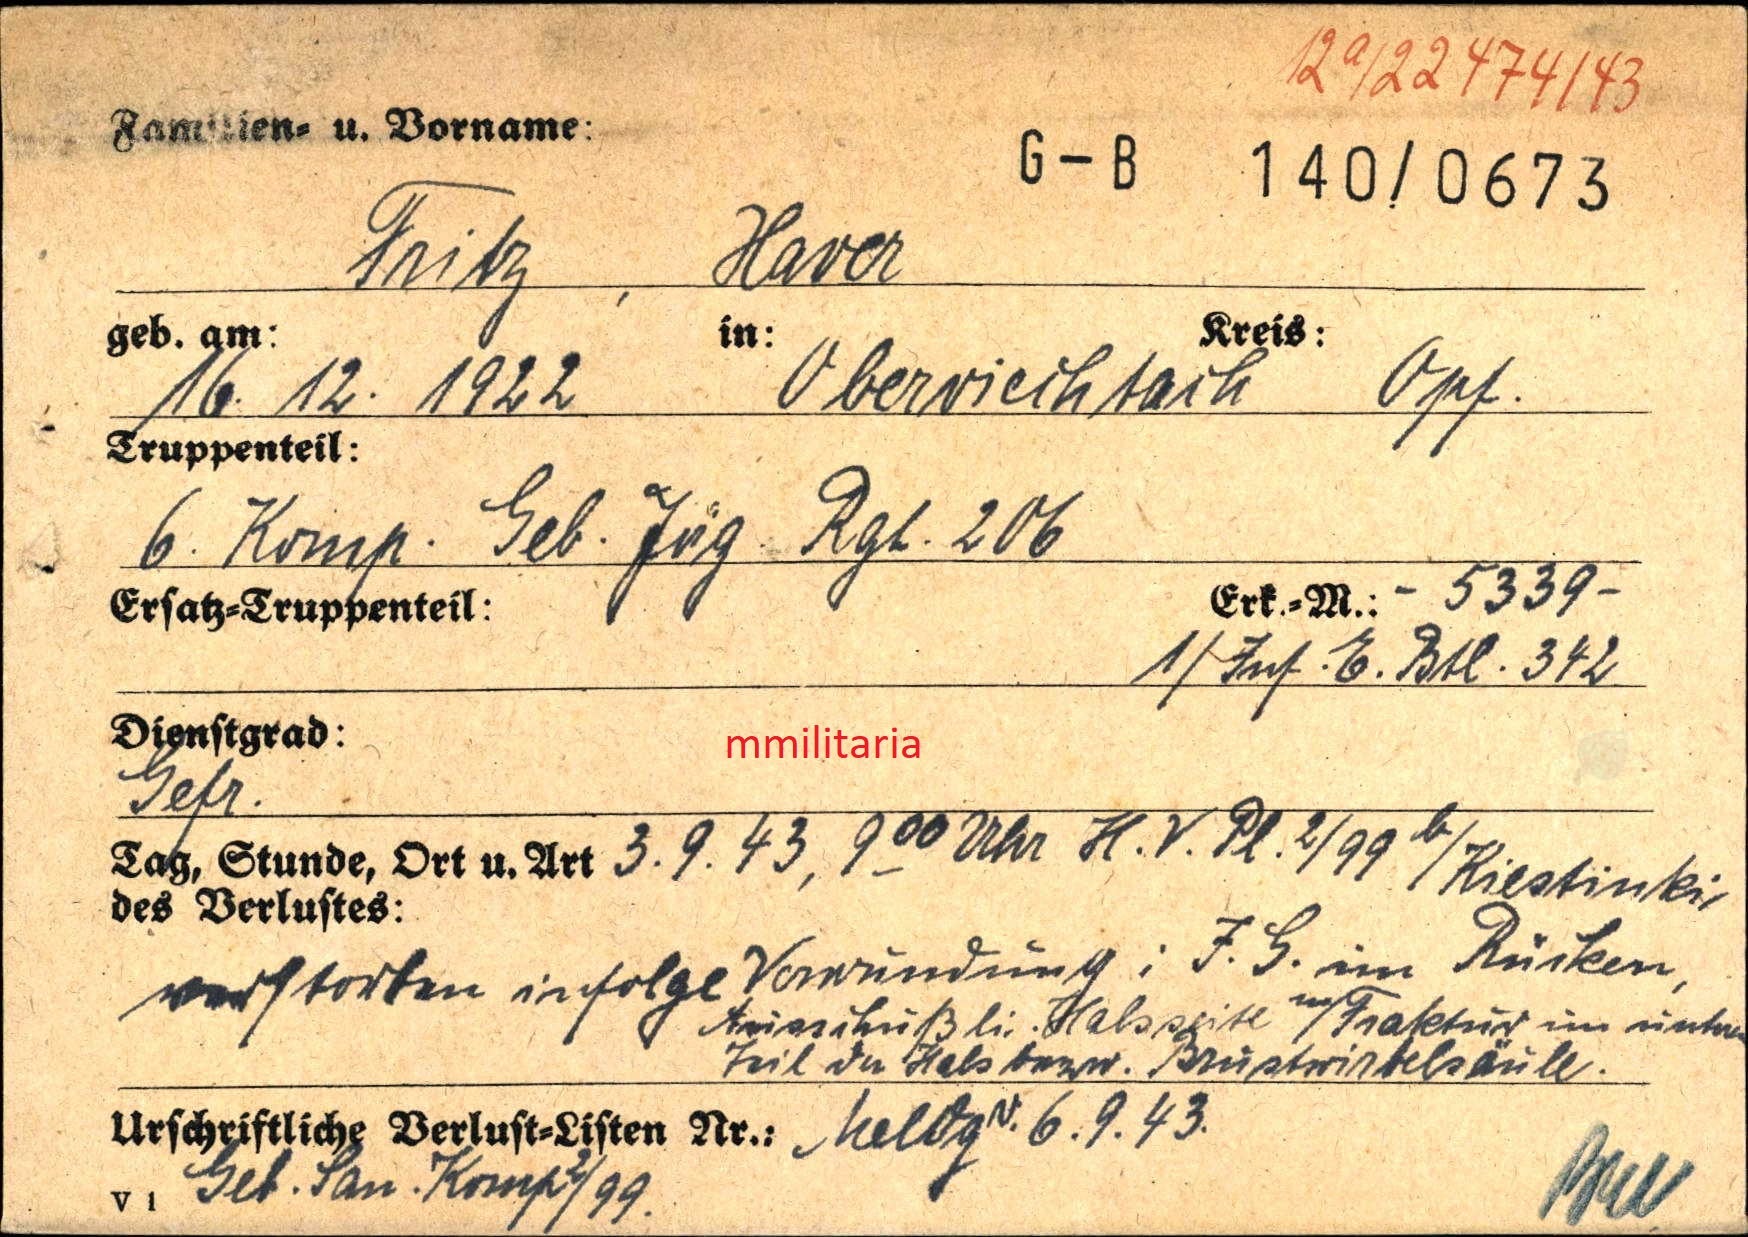 12a/22 474/43
Familien- u. Vorname:
G-B 140/0673
Fritz, Xaver
geb. am: in: Kreis:
16. 12. 1922 Oberviechtach Opf.
Truppenteil:
6. Komp. Geb. Jäg. Rgt. 206
Ersatz-Truppenteil: Erk.-M.: - 5339 -
1/ Inf. E. Btl. 342
Dienstgrad:
mmilitaria
Gefr.
Tag, Stunde, Ort u. Art 3. 9. 43, 9 00 Uhr H. V. Pl. 2/99 b/Kiestinki,
des Verlustes:
verstorben infolge Verwundung: J. G. im Rücken,
Ausschuß li. Halsseite m/Fraktur im untern
Teil der Hals bezw. Brustwirbelsäule.
Urschriftliche Verlust-Listen Nr.: Meldg v. 6. 9. 43.
Geb. San. Komp 2/99.
V 1